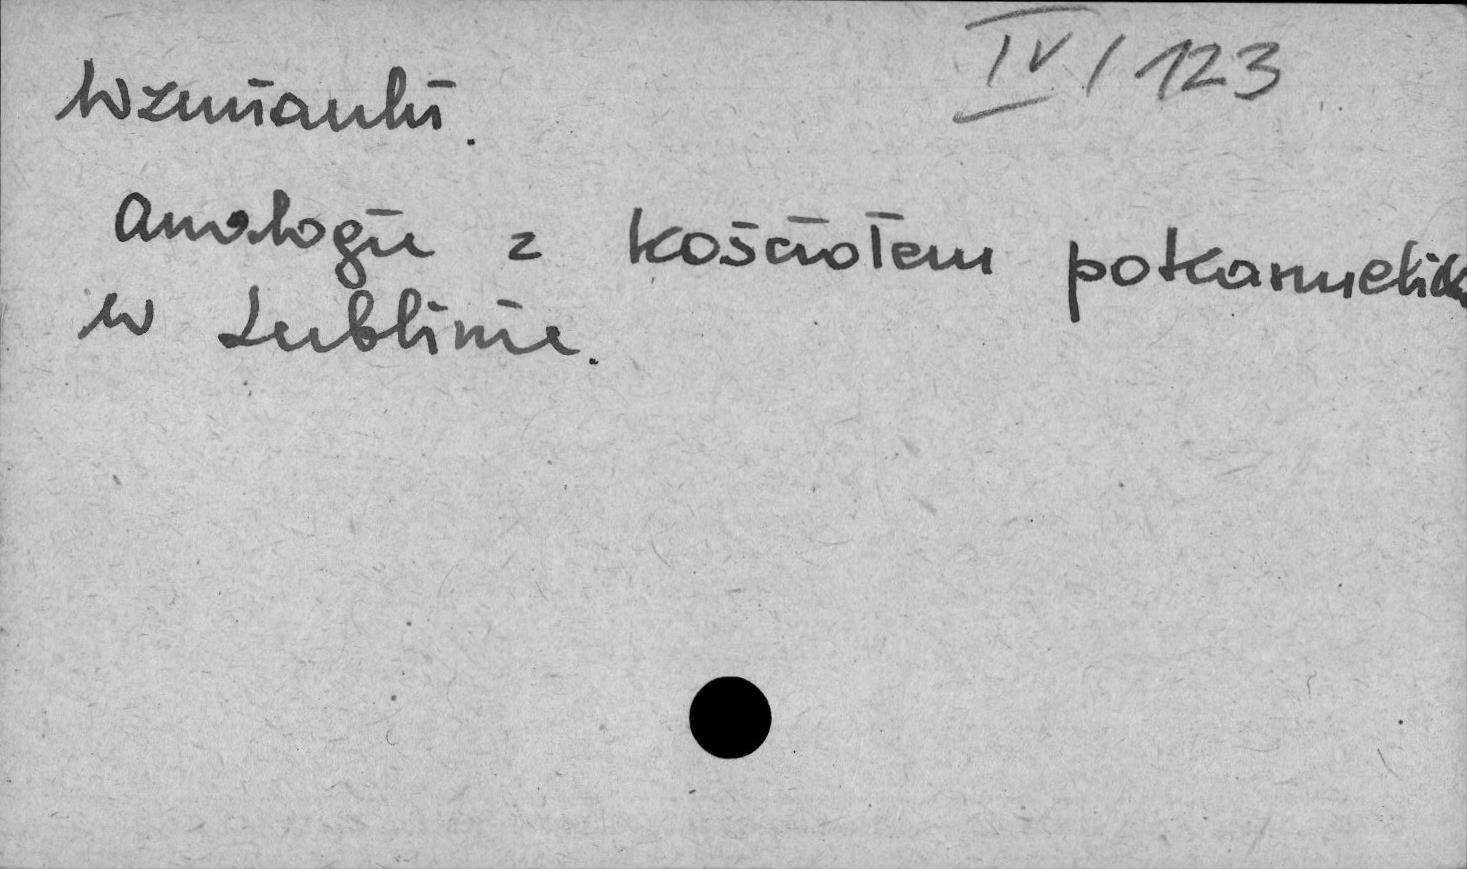 IV/123
Wzmianki.
Analogie z kościołem pokarmelick
w Lublinie.